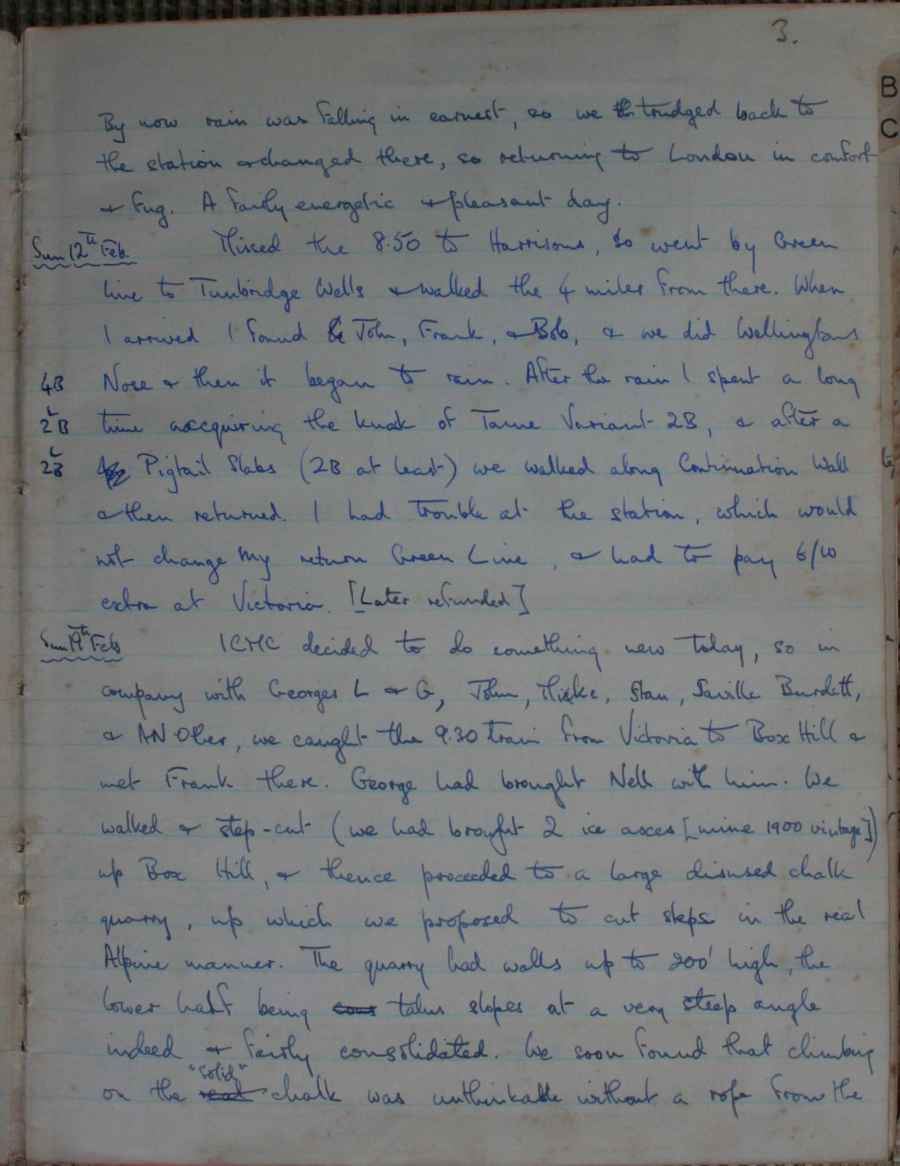 3.
B
C
By now rain was falling in earnest, so we trudged back to
the station & changed there, so returning to London in comfort
& fug. A fairly energetic & pleasant day.
Sun 12th Feb Missed the 8.50 to Harrisons, so went by Green
line to Tunbridge Wells & walked the 4 miles from there. When
I arrived I found John, Frank, & Bob, & we did Wellingtons
4B Nose & then it began to rain. After the rain I spent a long
2B time accquiring the knak of Tame Variant 2B, & after a
2B Pigtail Slabs (2B at least) we walked along Continuation Wall
& then returned. I had trouble at the station, which would
not change my return Green Line, & had to pay 6/10
extra at Victoria. [Later refunded]
Sun 19th Feb ICMC decided to do something new today, so in
company with Georges L & G, John, Mike, Stan, Saville Burdett,
& AN Other, we caught the 9.30 train from Victoria to Box Hill &
met Frank there. George had brought Nell with him. We
walked & step-cut (we had brought 2 ice axes [mine 1900 vintage])
up Box Hill, & thence proceeded to a large disused chalk
quarry, up which we proposed to cut steps in the real
Alpine manner. The quarry had walls up to 200' high, the
lower half being talus slopes at a very steep angle
indeed & fairly consolidated. We soon found that climbing
on the "solid" chalk was unthinkable without a rope from the